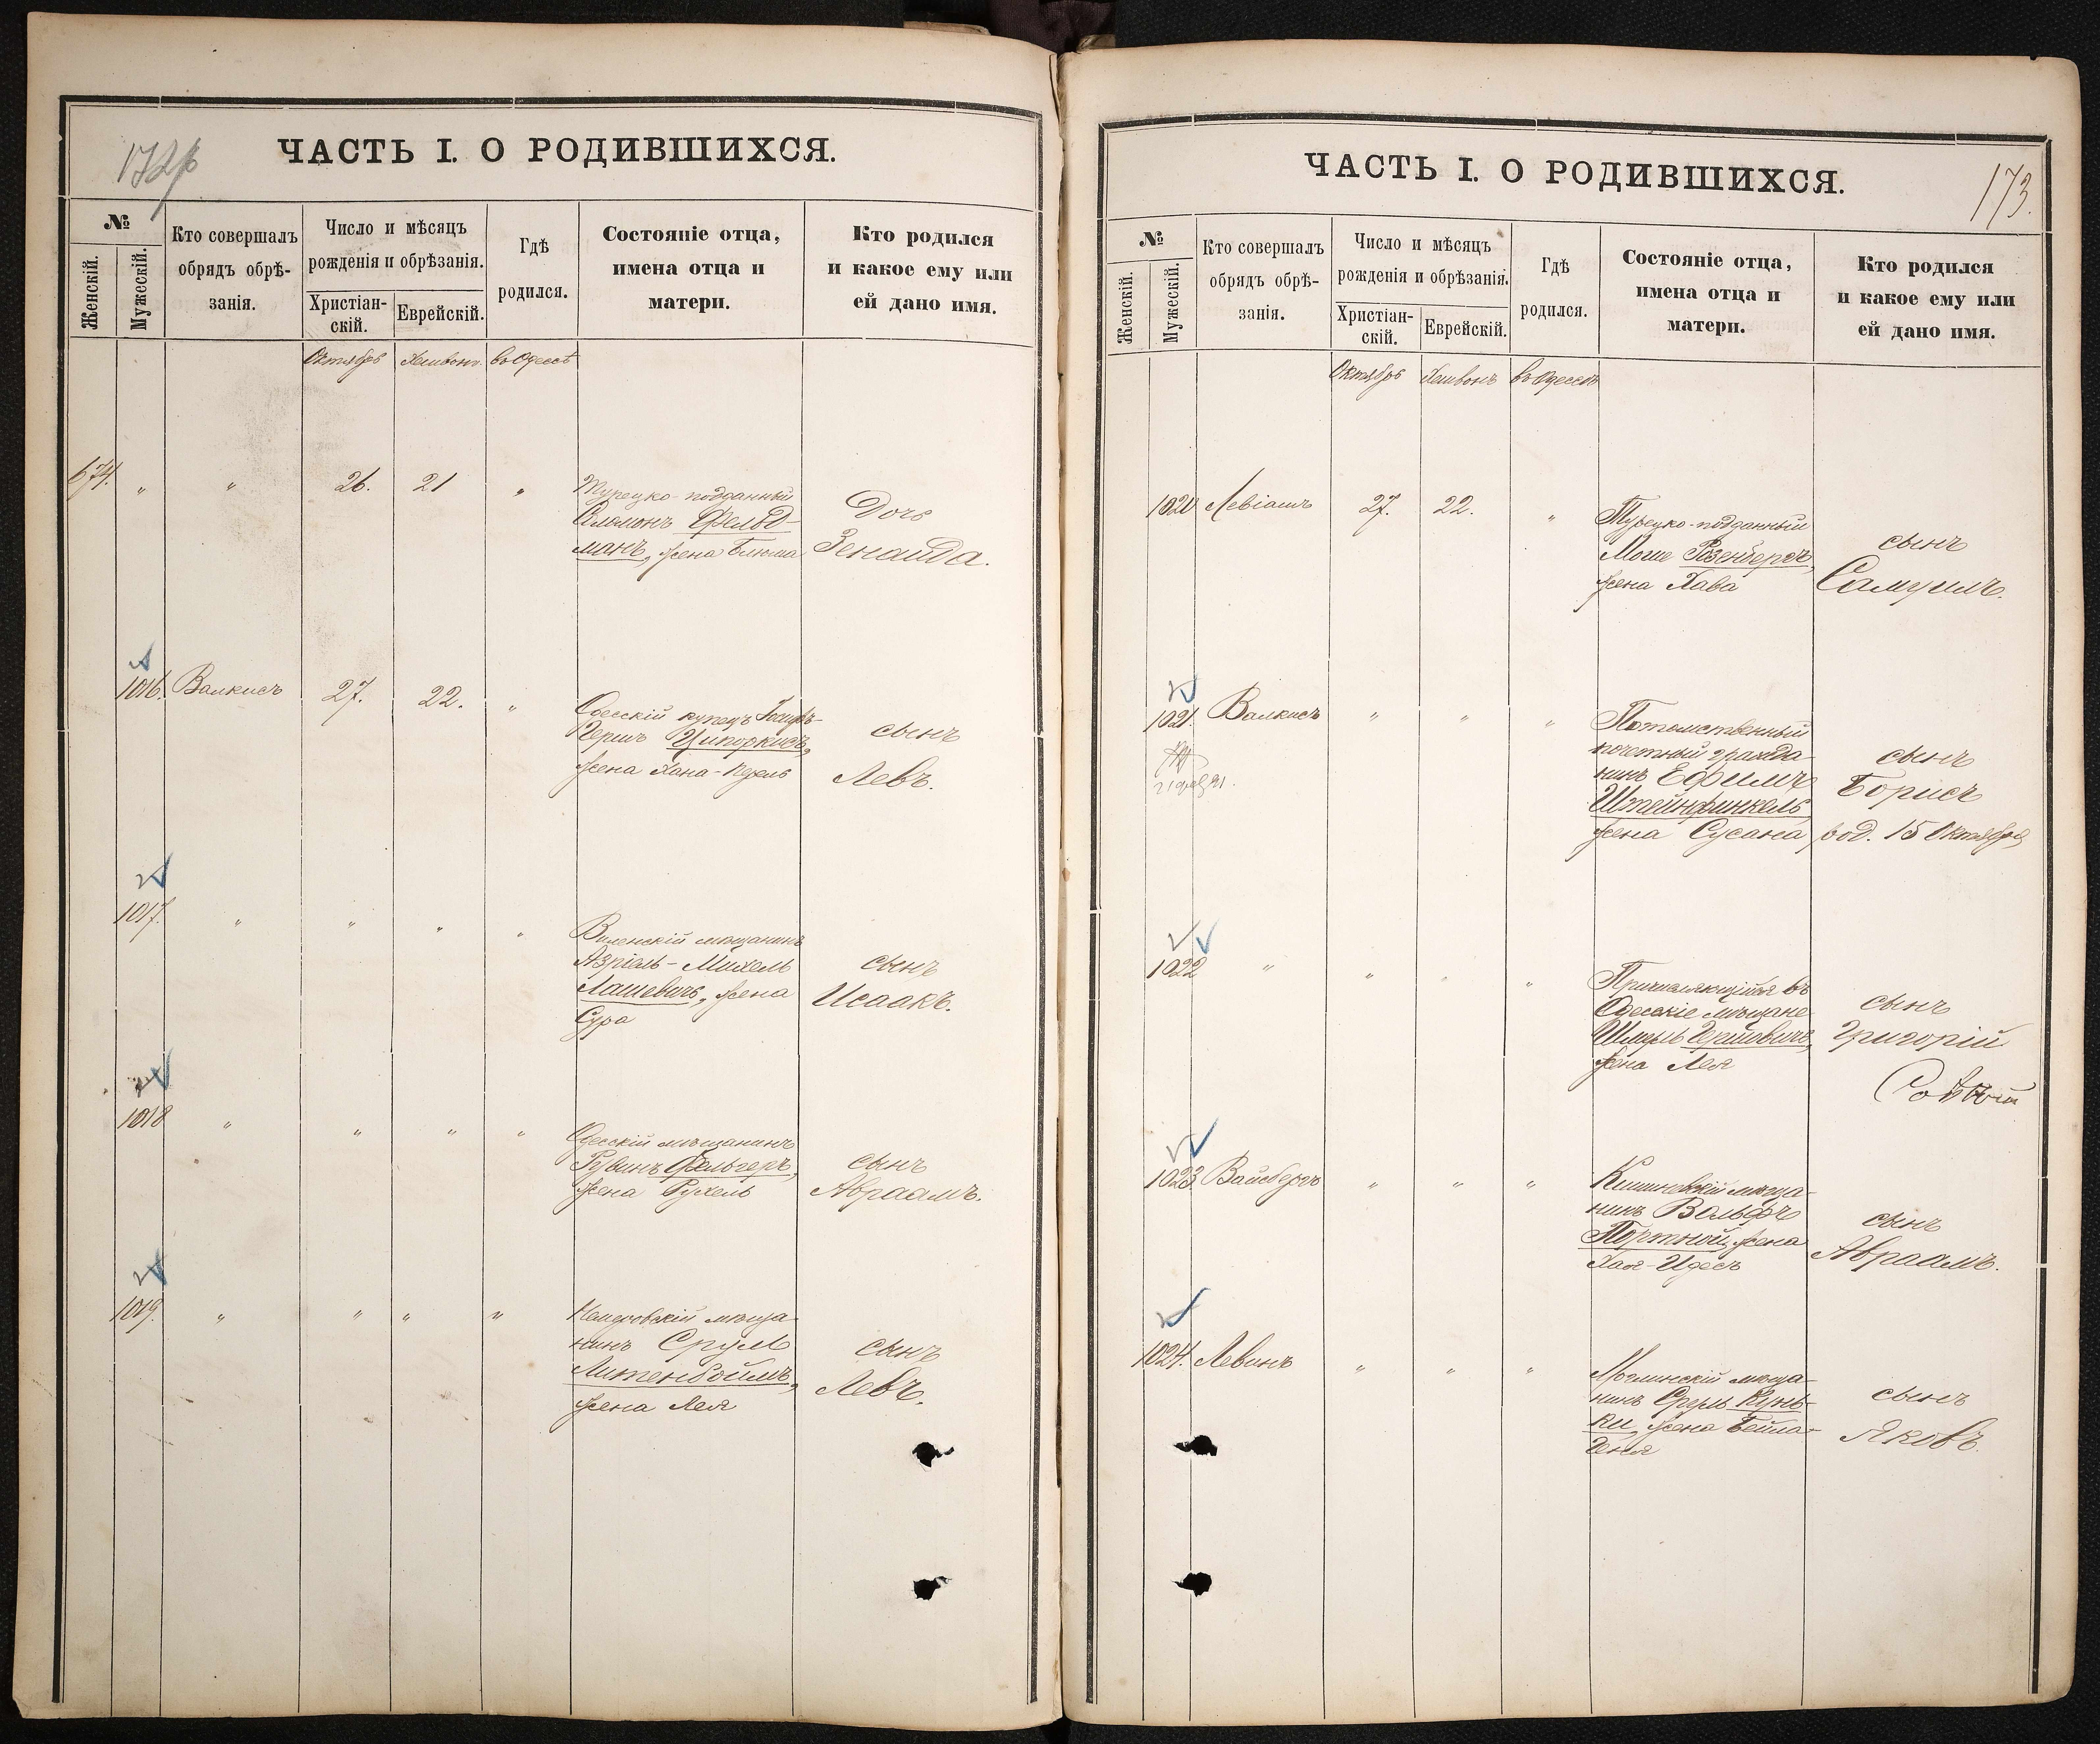 ЧАСТЬ I. О РОДИВШИХСЯ.
№
Женскій.
Мужескій.
Кто совершалъ
обрядъ обрѣ-
занія.
Число и мѣсяцъ
рожденія и обрѣзанія.
Христіан-
скій.
Еврейскій.
Гдѣ
родился.
Состояніе отца,
имена отца и
матери.
Кто родился
и какое ему или
ей дано имя.
Октябрь Хешвонъ въ Одессѣ
674. " " 26. 21 "
Турецко-подданный
Соломонъ Фельд-
манъ, жена Блюма
Дочь
Зенаида.
1016. Валкисъ 27. 22. "
Одесскій купецъ
Гершъ Ципоркисъ,
жена Хана-
сынъ
Левъ.
1017. " " " "
Виленскій мѣщанинъ
Азріель-Михель
Лашевичъ, жена
Сура
сынъ
Исаакъ.
1018 " " " "
Одесскій мѣщанинъ
Рувинъ Фельгеръ,
жена Рухель
сынъ
Авраамъ.
1019. " " " "
мѣща-
нинъ Срул
Литенбоймъ,
жена Лея
сынъ
Левъ.
ЧАСТЬ I. О РОДИВШИХСЯ.
173.
№
Женскій.
Мужескій.
Кто совершалъ
обрядъ обрѣ-
занія.
Число и мѣсяцъ
рожденія и обрѣзанія.
Христіан-
скій.
Еврейскій.
Гдѣ
родился.
Состояніе отца,
имена отца и
матери.
Кто родился
и какое ему или
ей дано имя.
Октябрь Хешвонъ въ Одессѣ
1020 Левіашъ 27. 22. "
Турецко-подданный
Моше Розенбергъ,
жена Хава
сынъ
Самуилъ.
1021. Валкисъ " " "
Потомственный
почетный гражда-
нинъ Ефимъ
Штейнфинкель
жена Сусана
сынъ
Борисъ
род. 15 Октября
1022 " " " "
Причисляющійся въ
Одесскіе мѣщане
Шмуль Гершовичъ,
жена Лея
сынъ
Григорій
1023 Вайсбергъ " " "
Кишиневскій мѣща-
нинъ Вольфъ
Портной, жена
Хая-Идесъ
сынъ
Авраамъ.
1024. Левинъ " " "
мѣща-
нинъ Сруль Кунь-
ки, жена Бейла-
Геня
сынъ
Яковъ.